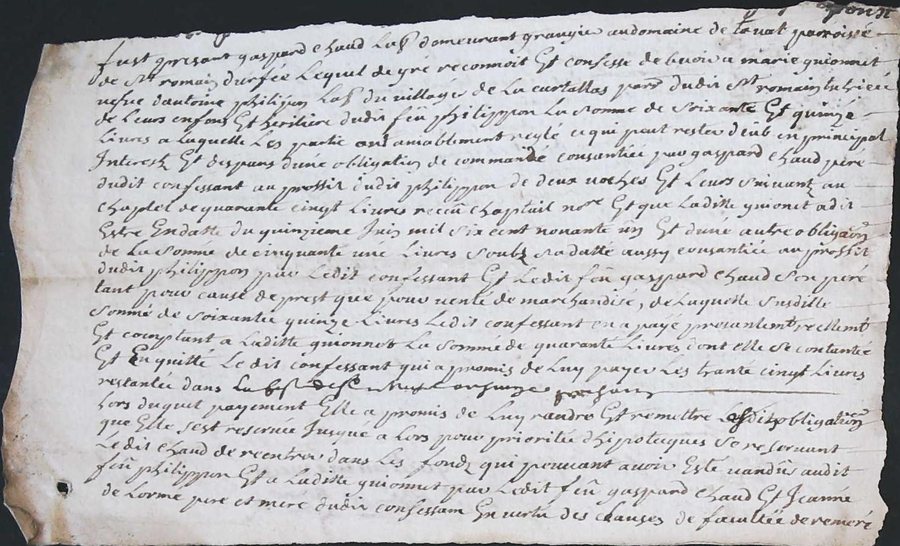 fust presant gaspard Chaud Lab. demeurant grangie au domaine de parroisse
de St romain durfée Lequel de gré reconnoit Et confesse debvoir a marie guionnet
vefve dantoine philippon Lab. du village de La curtallas parr. dudit St romain
de Leurs enfans Et heritiere dudit feu philippon La somme de soixante Et quinze
Livres a Laquelle Les partie ont amiablement reglé ce qui peut rester deub en principal
Interestz Et despans dune obligation de commande consantie par gaspard Chaud pere
dudit confessant au proffit dudit philippon de deux vaches Et Leurs suivantz au
chaptel de quarante cinq Livres receu Chaptail nore Et que Laditte guionet a dit
Estre En datte du quinzieme Juin mil six cent nonante un Et dune autre obligation
de La somme de cinquante une Livres soubz sa datte aussy consantie au proffit
dudit philippon par Ledit confessant Et Ledit feu gaspard Chaud son pere
tant pour cause de prest que pour vente de marchandise, de Laquelle susditte
somme de soixante quinze Livres Ledit confessant en a payé presantement reellemt
Et comptant a Laditte guionnet La somme de quarante Livres dont elle se contante
Et En quitte Ledit confessant qui a promis de Luy payer Les trante cinq Livres
restantes dans La
Lors duquel payement Elle a promis de Luy randre Et remettre obligation
que Elle sest reservue Jusque a Lors pour prioritée dhippotecques se reservant
Ledit Chaud de rentrer dans Les fondz qui peuvent avoir Esté vandu audit
feu philippon Et a Laditte guionnet par Ledit feu gaspard Chaud Et Jeanne
de Lorme pere et mere dudit confessant En vertu des clauses de facultée de remeré